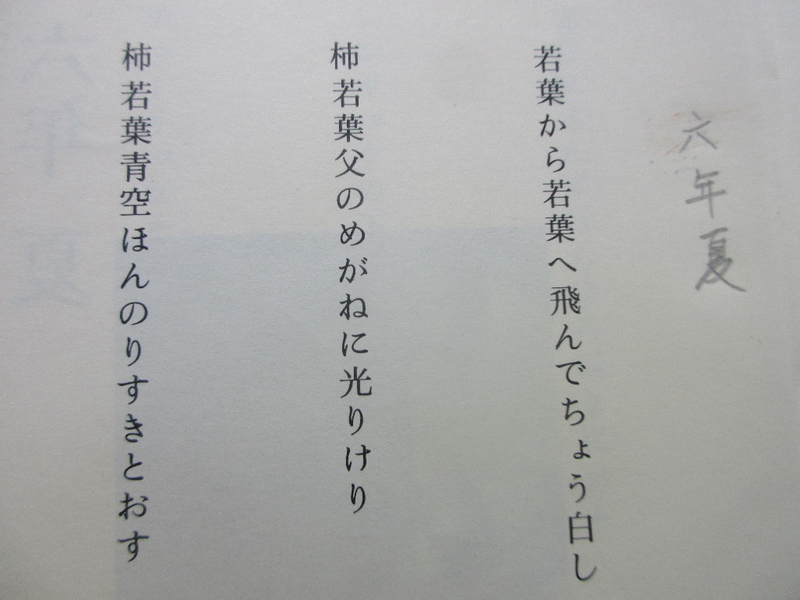 六年夏
若葉から若葉へ飛んでちょう白し
柿若葉父のめがねに光りけり
柿若葉青空ほんのりすきとおす